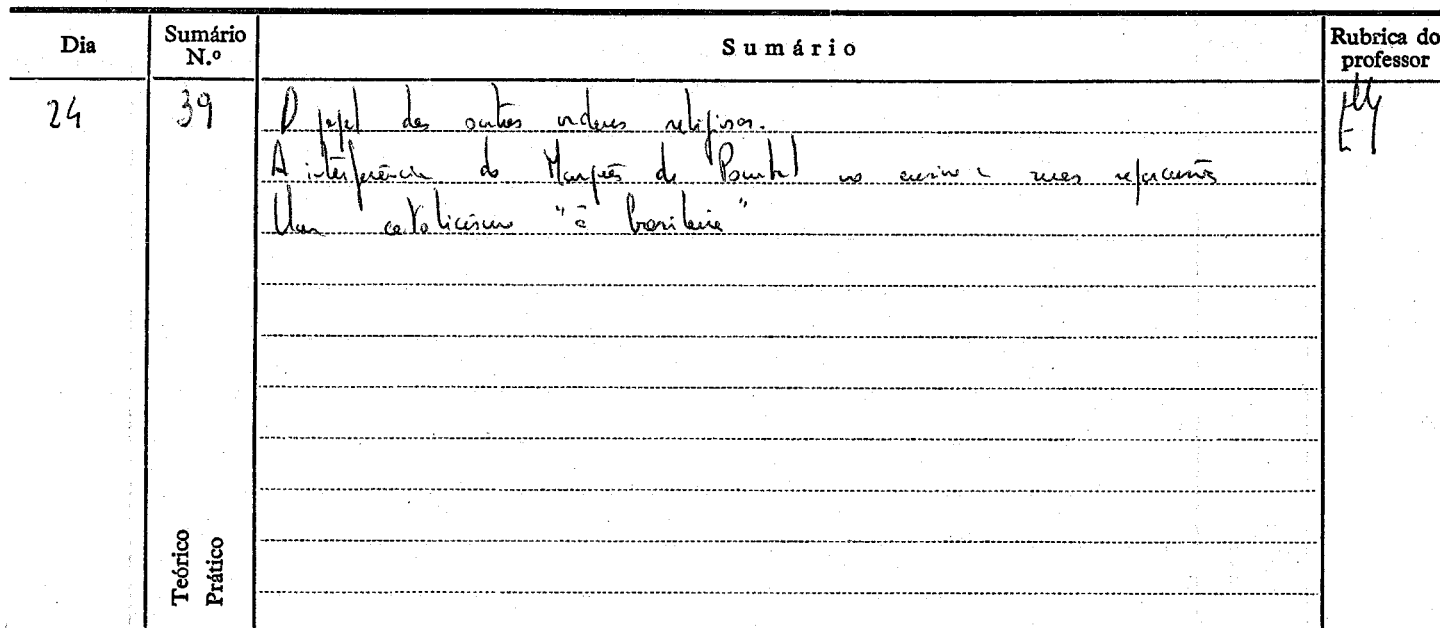 Dia
Sumário N.º
Sumário
Rubrica do professor
24
39
O papel das outras ordens religiosas.
A interferência do Marquês de Pombal no ensino e suas repercussões
Um catolicismo "à brasileira"
Teórico
Prático